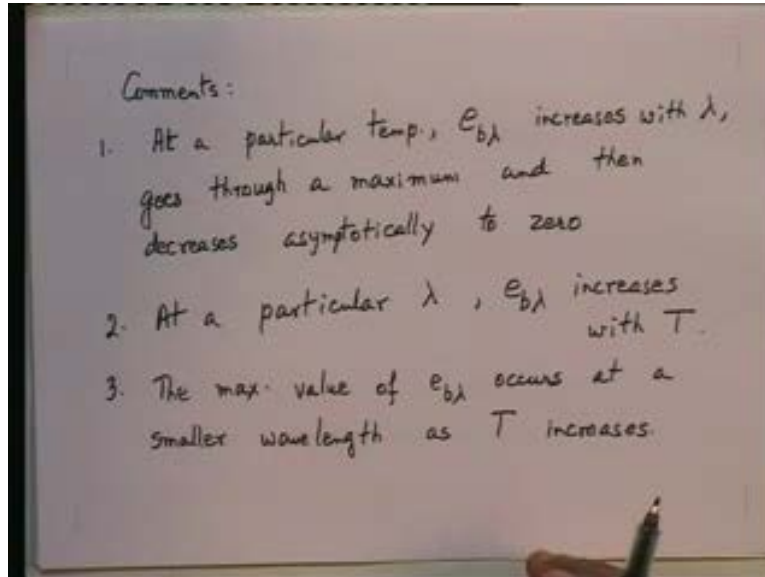 Comments:
1. At a particular temp., ebλ increases with λ,
goes through a maximum and then
decreases asymptotically to zero
2. At a particular λ, ebλ increases
with T.
3. The max. value of ebλ occurs at a
smaller wavelength as T increases.